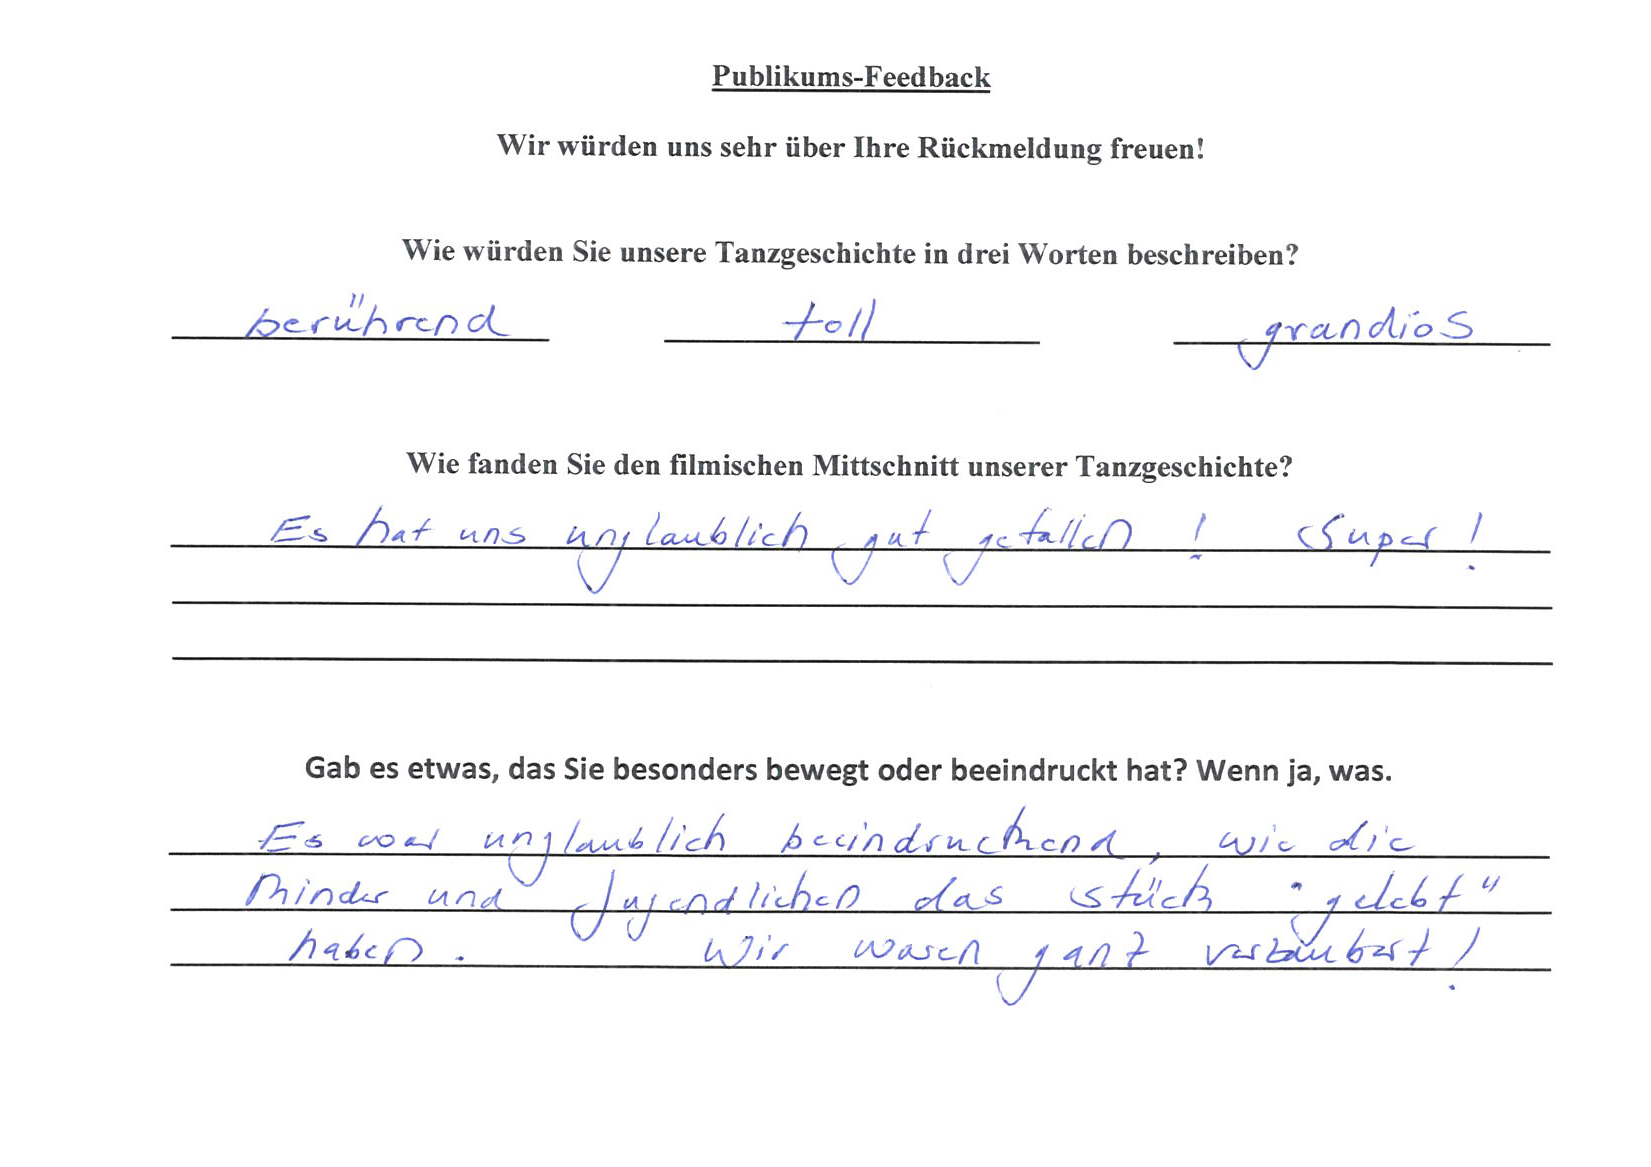 Publikums-Feedback
Wir würden uns sehr über Ihre Rückmeldung freuen!
Wie würden Sie unsere Tanzgeschichte in drei Worten beschreiben?
berührend toll grandios
Wie fanden Sie den filmischen Mittschnitt unserer Tanzgeschichte?
Es hat uns unglaublich gut gefallen ! Super !
Gab es etwas, das Sie besonders bewegt oder beeindruckt hat? Wenn ja, was.
Es war unglaublich beeindruckend, wie die
Kinder und Jugendlichen das Stück "gelebt"
haben. Wir waren ganz verzaubert!